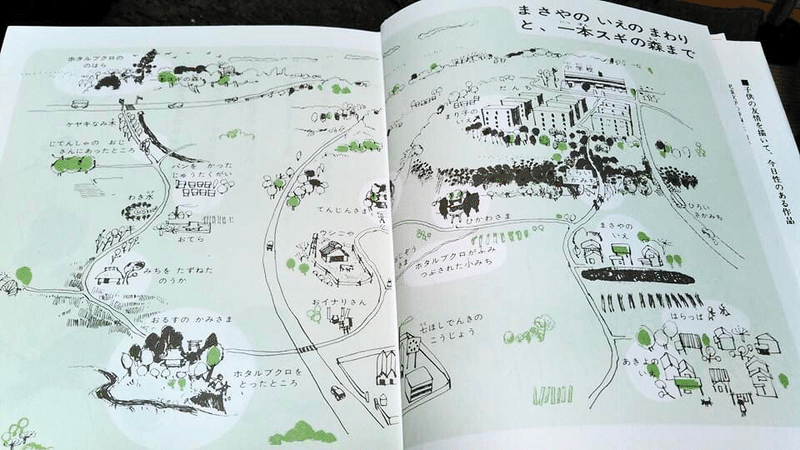 まさやの いえの まわり
と、一本スギの森まで
■子供の友情を描いて、今日性のある作品
ホタルブクロの
のはら
ケヤキなみ木
じてんしゃの おじ
さんにあったところ
パンを かった
じゅうたくがい
わき水
おてら
みちを たずねた
のうか
おるすの かみさま
ホタルブクロを
とったところ
てんじんさま
ウシごや
おイナリさん
小学校
だんち
まり子の
ひかわさま
ホタルブクロがふみ
つぶされた小みち
七ほしでんきの
こうじょう
ひろい
さかみち
まさやの
いえ
はらっぱ
あきよの